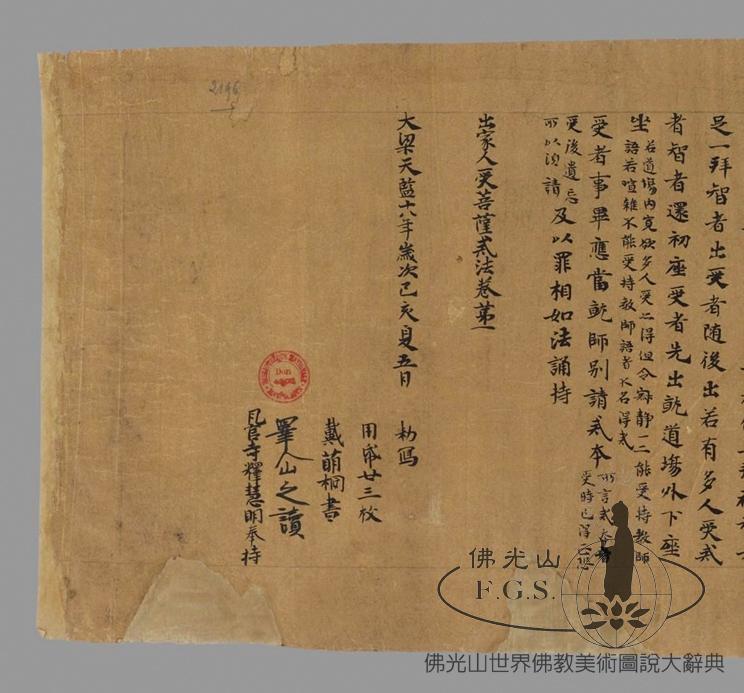 足一拜智者出受者随後出若有多人受戒
者智者還初座受者先出就道場外下座
坐 若道場内寛欲多人受亦得但令寂静一二能受持教師
語若喧雜不能受持教師語者不名得戒
受者事畢應當就師別請戒本 所言戒本者
受時已得
受後遺忘
所以須請 及以罪相如法誦持
出家人受菩薩戒法卷第一
大梁天監十八年歲次己亥夏五月 勑寫
用紙廿三枚
戴萌桐書
畢仚之讀
瓦官寺釋慧明奉持
2196
Don
佛光山
F.G.S.
佛光山世界佛教美術圖說大辭典